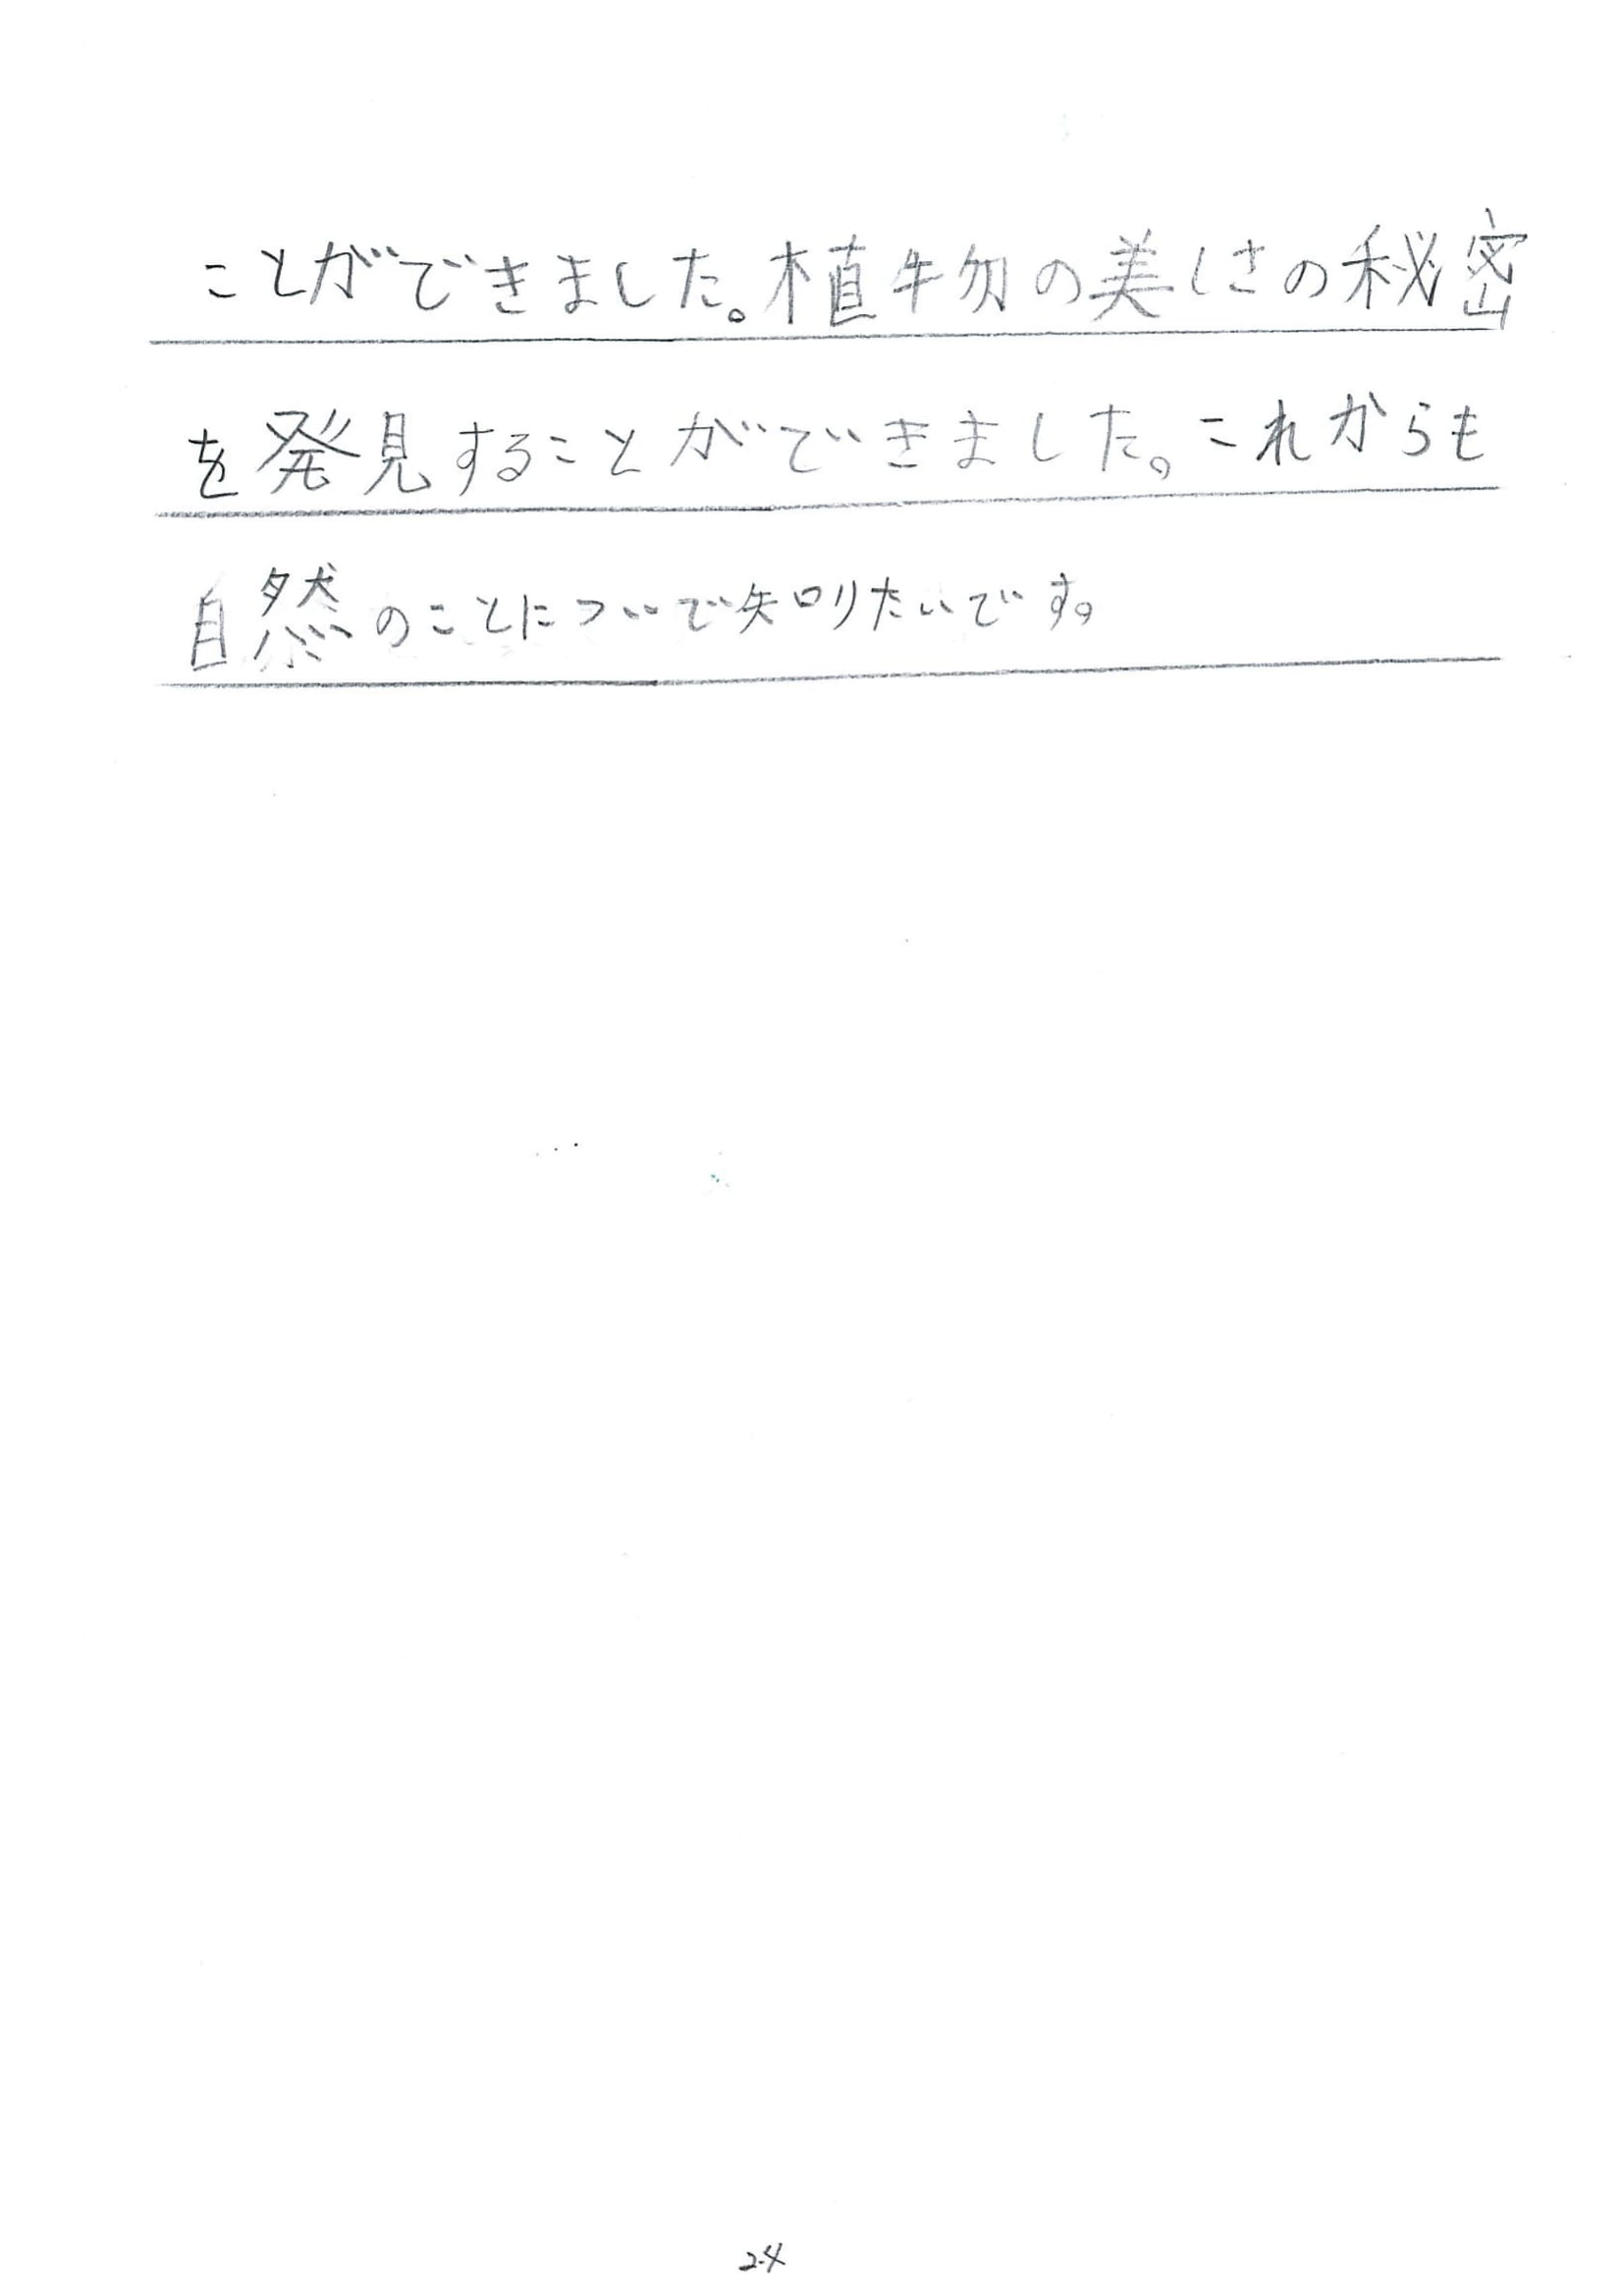 ことができました。植物の美しさの秘密
を発見することができました。これからも
自然のことについで知りたいです。
24